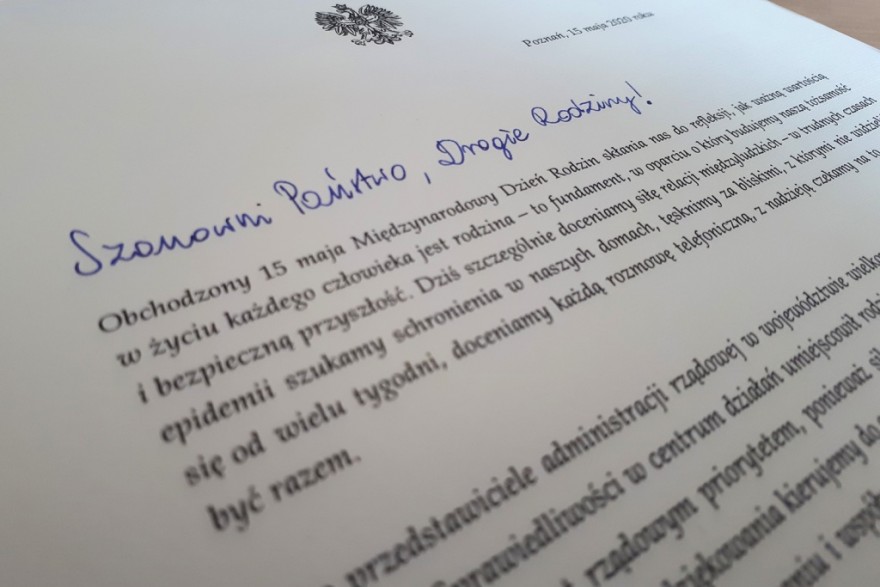 Poznań, 15 maja 2020 roku
Szanowni Państwo, Drogie Rodziny!
Obchodzony 15 maja Międzynarodowy Dzień Rodzin skłania nas do refleksji, jak ważną wartością
w życiu każdego człowieka jest rodzina – to fundament, w oparciu o który budujemy naszą tożsamość
i bezpieczną przyszłość. Dziś szczególnie doceniamy siłę relacji międzyludzkich – w trudnych czasach
epidemii szukamy schronienia w naszych domach, tęsknimy za bliskimi, z którymi nie widzieli
się od wielu tygodni, doceniamy każdą rozmowę telefoniczną, z nadzieją czekamy na to
być razem.
przedstawiciele administracji rządowej w województwie wielko
prawiedliwości w centrum działań umiejscowił rodzi
rządowym priorytetem, ponieważ sil
kierujemy do
i współ